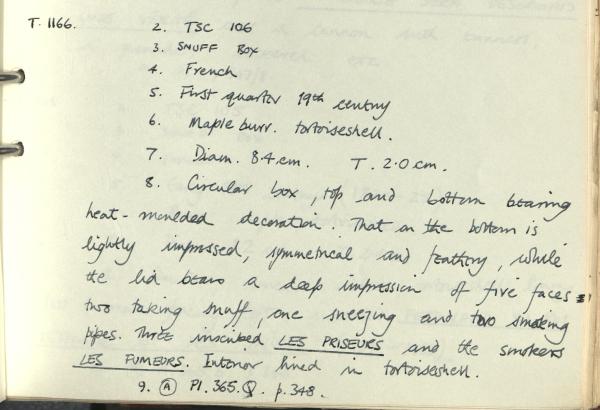 T. 1166. 2. TSC 106
3. SNUFF BOX
4. French
5. First quarter 19th century
6. Maple burr. tortoiseshell.
7. Diam. 8.4.cm. T. 2.0 cm.
8. Circular box, top and bottom bearing
heat-moulded decoration. That on the bottom is
lightly impressed, symmetrical and feathery, while
the lid bears a deep impression of five faces =
two taking snuff, one sneezing and two smoking
pipes. Three inscribed LES PRISEURS and the smokers
LES FUMEURS. Interior lined in tortoiseshell.
9. A Pl. 365. Q. p. 348.